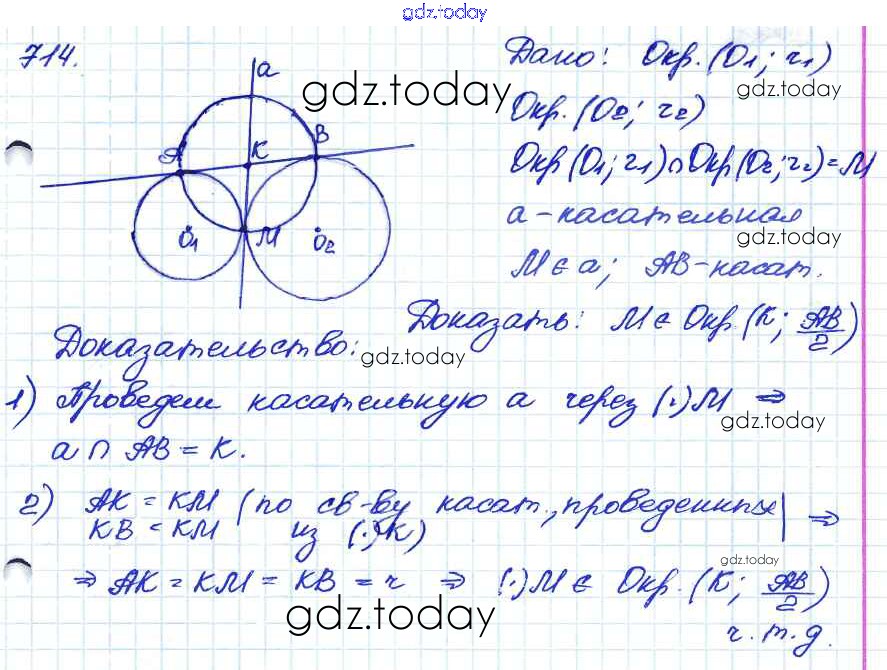 gdz.today
714.
Дано: Окр. (O1; r1)
gdz.today
gdz.today
Окр. (O2; r2)
Окр (O1; r1) ∩ Окр (O2; r2) = M
a - касательная
gdz.today
M ∈ a; AB - касат.
a
A
K
B
O1
M
O2
Доказать: M ∈ Окр. (K; AB/2)
Доказательство:
gdz.today
1) Проведем касательную a через (·) M ⇒
gdz.today
a ∩ AB = K.
2) AK = KM (по св-ву касат., проведенных
KB = KM из (·) K) ⇒
gdz.today
⇒ AK = KM = KB = r ⇒ (·) M ∈ Окр. (K; AB/2)
gdz.today
ч.т.д.